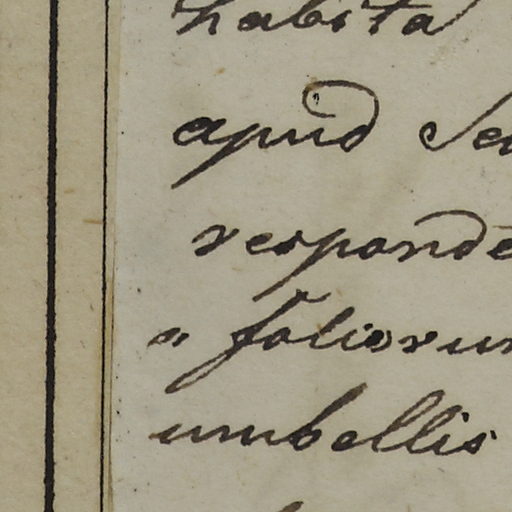 habita
apud Se
responde
" foliorum
umbellis